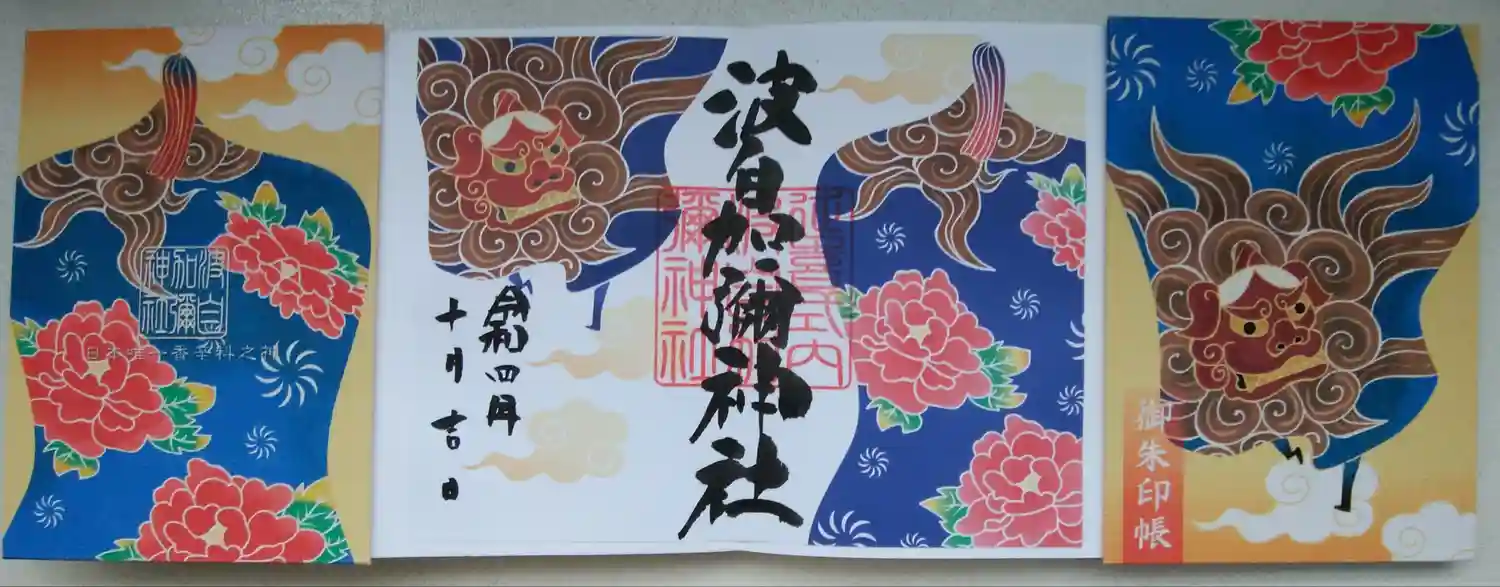 御朱印帳
波自加彌神社
延喜式内
波自加
彌神社
令和四年
十月吉日
波自
加彌
神社
日本唯一香辛料之神